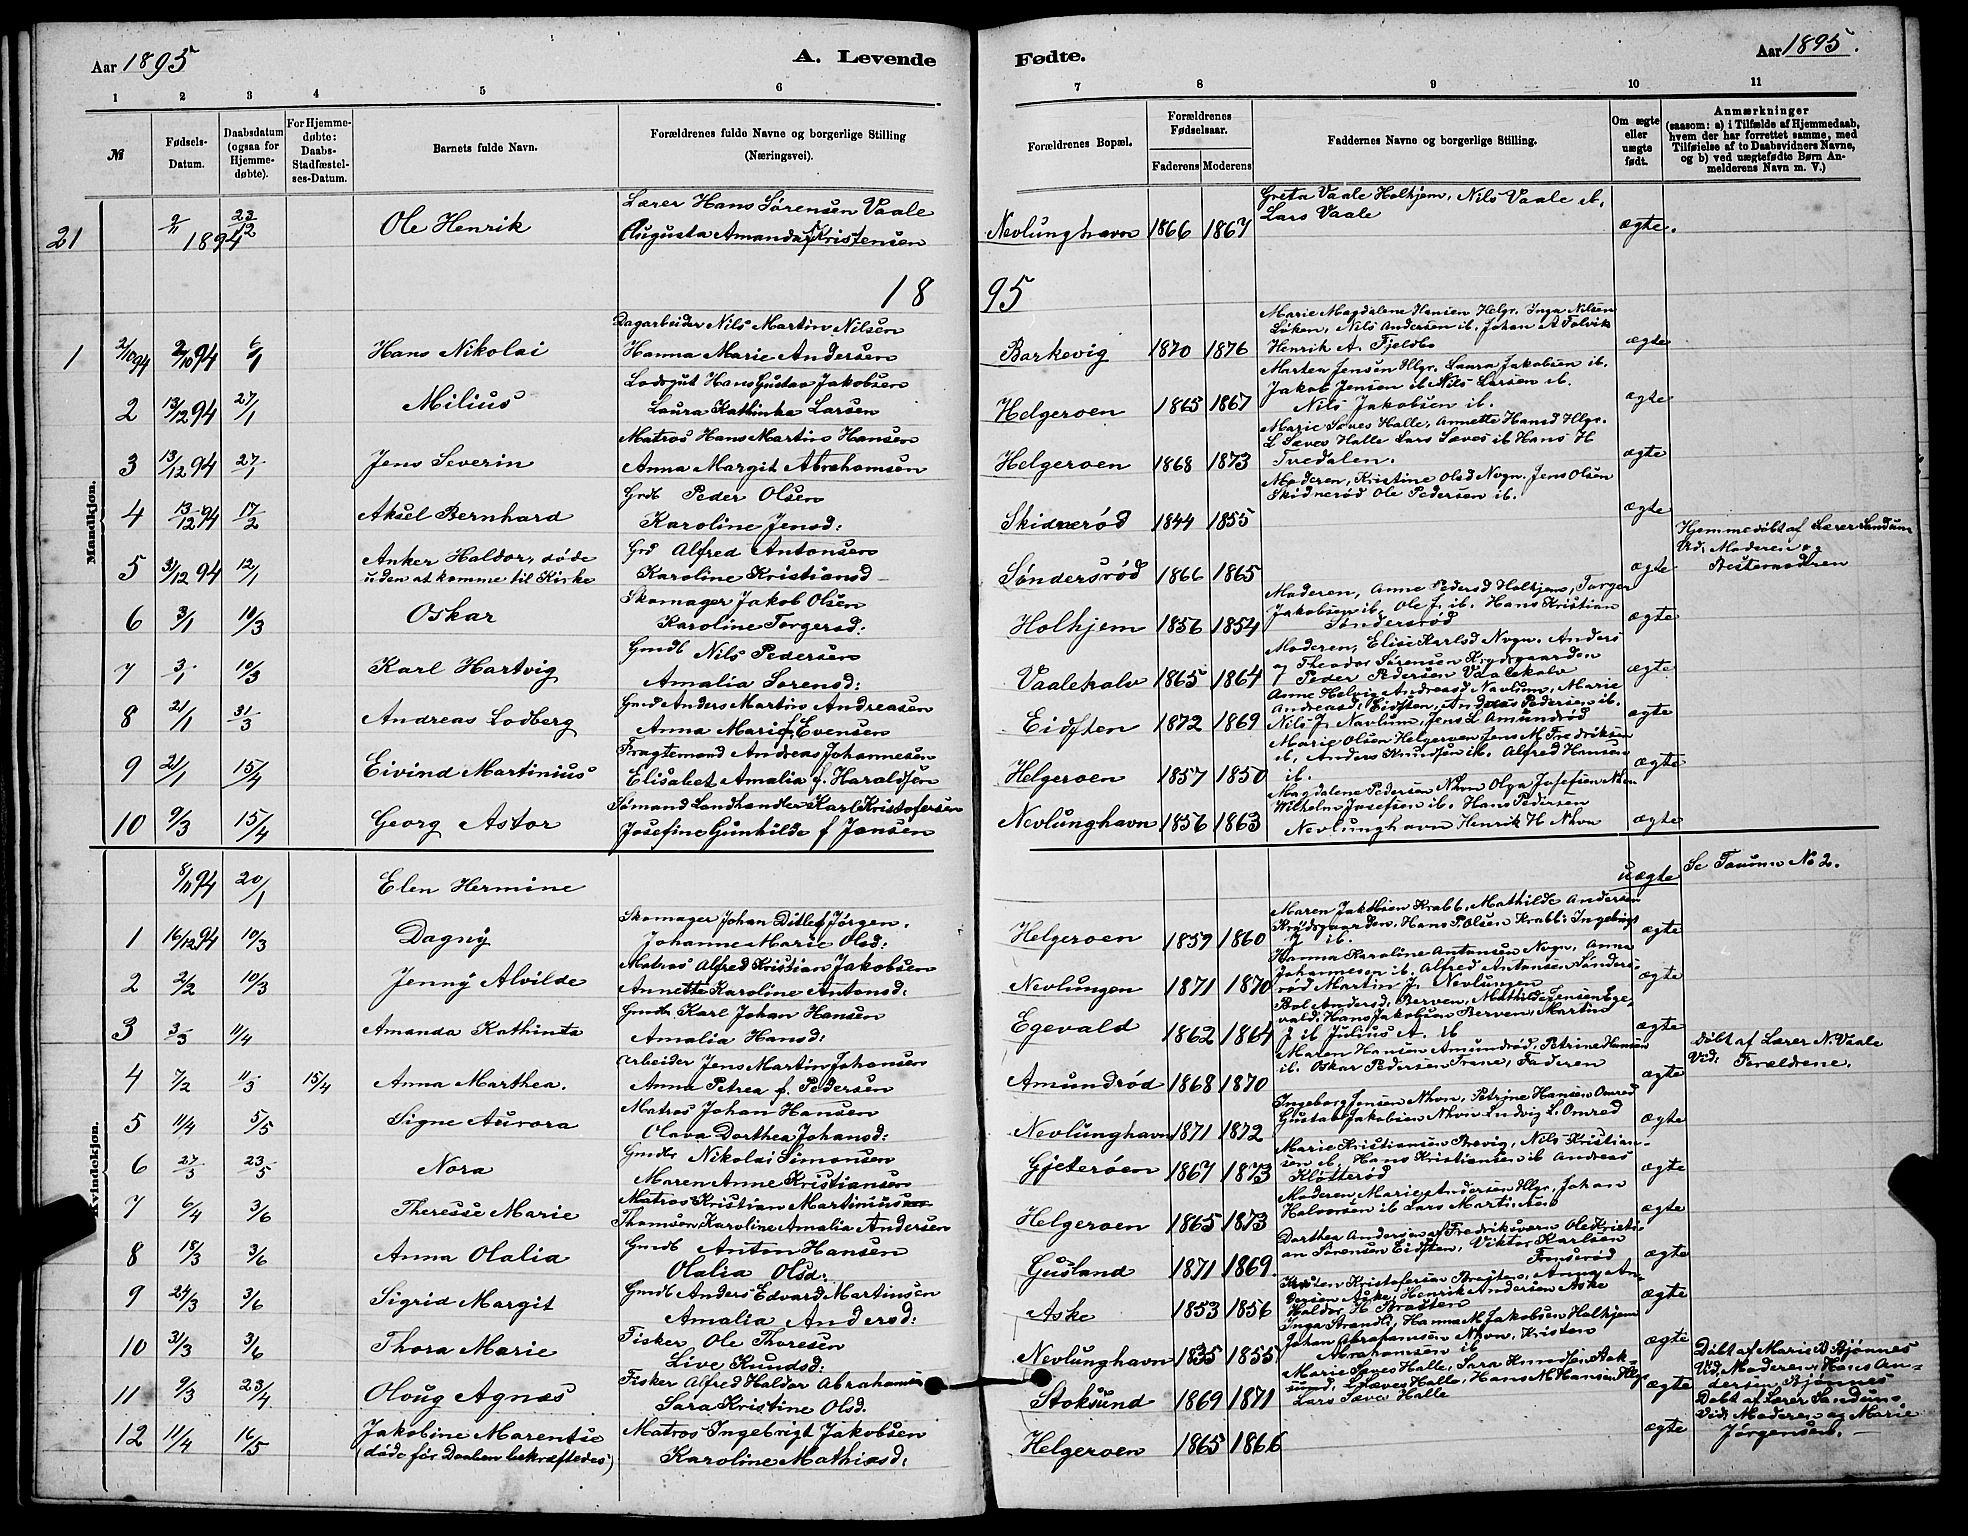 Aar 1895
A. Levende
Fødte.
Aar 1895.
1 2 3 4 5 6 7 8 9 10 11
№
Fødsels-Datum.
Daabsdatum (ogsaa for Hjemme-døbte).
For Hjemme-døbte: Daabs-Stadfæstel-ses-Datum.
Barnets fulde Navn.
Forældrenes fulde Navne og borgerlige Stilling (Næringsvei).
Forældrenes Bopæl.
Forældrenes Fødselsaar.
Faderens Moderens
Faddernes Navne og borgerlige Stilling.
Om ægte eller uægte født.
Anmærkninger
(saasom: a) i Tilfælde af Hjemmedaab, hvem der har forrettet samme, med Tilføielse af to Daabsvidners Navne, og b) ved uægtefødte Børn An-melderens Navn m. V.)
Mandkjøn.
21 2/11 1894 23/12 Ole Henrik
Lærer Hans Sørensen Vaale
Augusta Amanda f Kristensen
Nevlunghavn 1866 1867
Greta Vaale Holhjem, Nils Vaale ib,
Lars Vaale
ægte.
18 95
1 2/10 94 2/10 94 6/1 Hans Nikolai
Dagarbeider Nils Martin Nilsen
Hanna Marie Andersen
Barkevig 1870 1876
Marie Magdalene Hansen Helgr. Inga Nilsen
Løken, Nils Andersen ib. Johan A Tolvik
Henrik A. Fjeldbo
ægte
2 13/12 94 27/1 Milius
Lodsgut Hans Gustav Jakobsen
Laura Kathinka Larsen
Helgeroen 1865 1867
Martea Jensen Hlgr. Laura Jakobsen ib.
Jakob Jensen ib Nils Larsen ib.
Nils Jakobsen ib.
ægte
3 13/12 94 27/1 Jens Severin
Matros Hans Martin Hansen
Anna Margit Abrahamsen
Helgeroen 1868 1873
Marie Søves Halle, Annette Hansd Hlgr.
L Søves Halle Lars Søves ib Hans H
Tvedalen.
ægte
4 13/12 94 17/2 Aksel Bernhard
Grdb Peder Olsen
Karoline Jensd:
Skidnerød 1844 1855
Moderen, Kristine Olsd Nvgn. Jens Olsen
Skidnerød Ole Pedersen ib.
ægte
5 31/12 94 12/1 Anker Haldor, døde
uden at komme til Kirke
Grd Alfred Antonsen
Karoline Kristiansd
Søndersrød 1866 1865
ægte
Hjemmedøbt af Lærer Sandum
Vid. Moderen og
Bestemoderen
6 3/1 10/3 Oskar
Skomager Jakob Olsen
Karoline Torgersd:
Holhjem 1856 1854
Moderen, Anne Pedersd Holhjem, Torger
Jakobsen ib, Ole J. ib. Hans Kristian
Søndersrød
ægte
7 3/1 10/3 Karl Hartvig
Gmdb Nils Pedersen
Amalia Sorensd:
Vaalekalv 1865 1864
Moderen, Elise Karlsd Nvgn. Anders
og Theodor Sørensen Krydsgaarden
Peder Pedersen Vaalekalv
ægte
8 21/1 31/3 Andreas Lodberg
Gmd Anders Martin Andreasen
Anna Marie f Evensen
Eidsten 1872 1869
Anne Helvig Andreasd Navlum, Marie
Andreasd: Eidsten, Andreas Pedersen ib.
Nils J. Navlum, Jens L Amundrød
ægte
9 21/1 15/4 Eivind Martinius
Fragtemand Andreas Johannesen
Elisabet Amalia f. Haraldsen
Helgeroen 1857 1850
Marie Olsen Helgeroen Jens M. Fredriksen
ib, Anders Knudsen ib. Alfred Hansen
ib.
ægte
10 9/3 15/4 Georg Astor
Sømand Landhandler Karl Kristofersen
Josefine Gunhilde f Jansen
Nevlunghavn 1856 1863
Magdalene Pedersen Nhvn Olga Josefsen Nhvn
Wilhelm Josefsen ib. Hans Pedersen
Nevlunghavn Henrik H Nhvn
ægte
Kvindekjøn.
8/11 94 20/1 Elen Hermine
uægte
Se Taum No 2.
1 16/12 94 10/3 Dagny
Skomager Johan Ditlef Jørgen.
Johanne Marie Olsd:
Helgeroen 1859 1860
Maren Jakobsen Krabb, Mathilde Andersen
Krydsgaarden, Hans P. Olsen Krabb: Ingebrigt
J ib.
ægte
2 2/2 10/3 Jenny Alvilde
Matros Alfred Kristian Jakobsen
Annette Karoline Antonsd:
Nevlungen 1871 1870
Hanna Karoline Antonsen Nvgn, Anna
Johannesen ib. Alfred Antonsen Sønders-
rød Martin J. Nevlungen
ægte
3 3/3 11/4 Amanda Kathinka
Gmdb Karl Johan Hansen
Amalia Hansd:
Egevald 1862 1864
Bol Andersd: Berven, Mathilde Jensen Ege-
vald, Hans Jakobsen Berven, Martin
J ib Julius A. ib
ægte
4 7/2 11/3 15/4 Anna Marthea.
Arbeider Jens Martin Johansen
Anna Petrea f. Pedersen
Amundrød 1868 1870
Maren Hansen Amundrød, Petrine Hansen
ib. Oskar Pedersen Frene, Faderen
ægte
Døbt af Lærer N. Vaale
Vid: Forældrene.
5 11/4 5/5 Signe Aurora
Matros Johan Hansen
Olava Dorthea Johansd:
Nevlunghavn 1871 1872
Ingeborg Jensen Nhvn, Petrine Hansen Omred
Gustav Jakobsen Nhvn Ludvig L. Omred
ægte
6 27/3 23/5 Nora
Gmdb Nikolai Simonsen
Maren Anne Kristiansen
Gjeterøen 1867 1873
Marie Kristiansen Brevig, Nils Kristian-
sen ib, Hans Kristiansen ib Andreas
Kløtterød
ægte
7 6/4 3/6 Theresse Marie
Matros Kristian Martinius
Thomsen Karoline Amalia Andersen
Helgeroen 1865 1873
Moderen, Marie Andersen Hlgr, Johan
Halvorsen ib Lars Martin
ægte
8 18/3 3/6 Anna Olalia
Gmdb Anton Hansen
Olalia Olsd:
Gusland 1871 1869.
Dorthea Andersen af Fredriksværn Ole Kristi-
an Sørensen Eidsten, Viktor Karlsen
ægte
9 24/3 3/6 Sigrid Margit
Gmdb Anders Edvard Martinsen
Amalia Andersd:
Aske 1853 1856
Kristen Kristofersen Brøsten, Anna An-
dersen Aske, Henrik Andersen Aske
Haldor H Brøsten
ægte
10 31/3 3/6 Thora Marie
Fisker Ole Thoresen
Live Knudsd:
Nevlunghavn 1835 1855
Inga Strandli, Hanna M. Jakobsen Holhjem
Johan Abrahamsen Nhvn, Kristen
Abrahamsen ib
ægte
11 9/3 23/4 Oloug Agnes
Fisker Alfred Haldor Abrahamsen
Sara Kristine Olsd.
Stoksund 1869 1871
Marie Søves Halle, Sara Knudsen Stok-
sund, L Søves Halle, Hans M. Hansen Hlgr
Lars Søves Halle
ægte
Døbt af Maris D Bjønnes
Vid, Moderen, Hans An-
dersen Bjønnes
12 11/4 16/5 Jakobine Marentse
(døde før Daaben bekræftedes)
Matros Ingebrigt Jakobsen
Karoline Mathiasd:
Helgeroen 1865 1866
ægte
Døbt af Lærer Sandum
Vid: Moderen og Marie
Jørgensen.